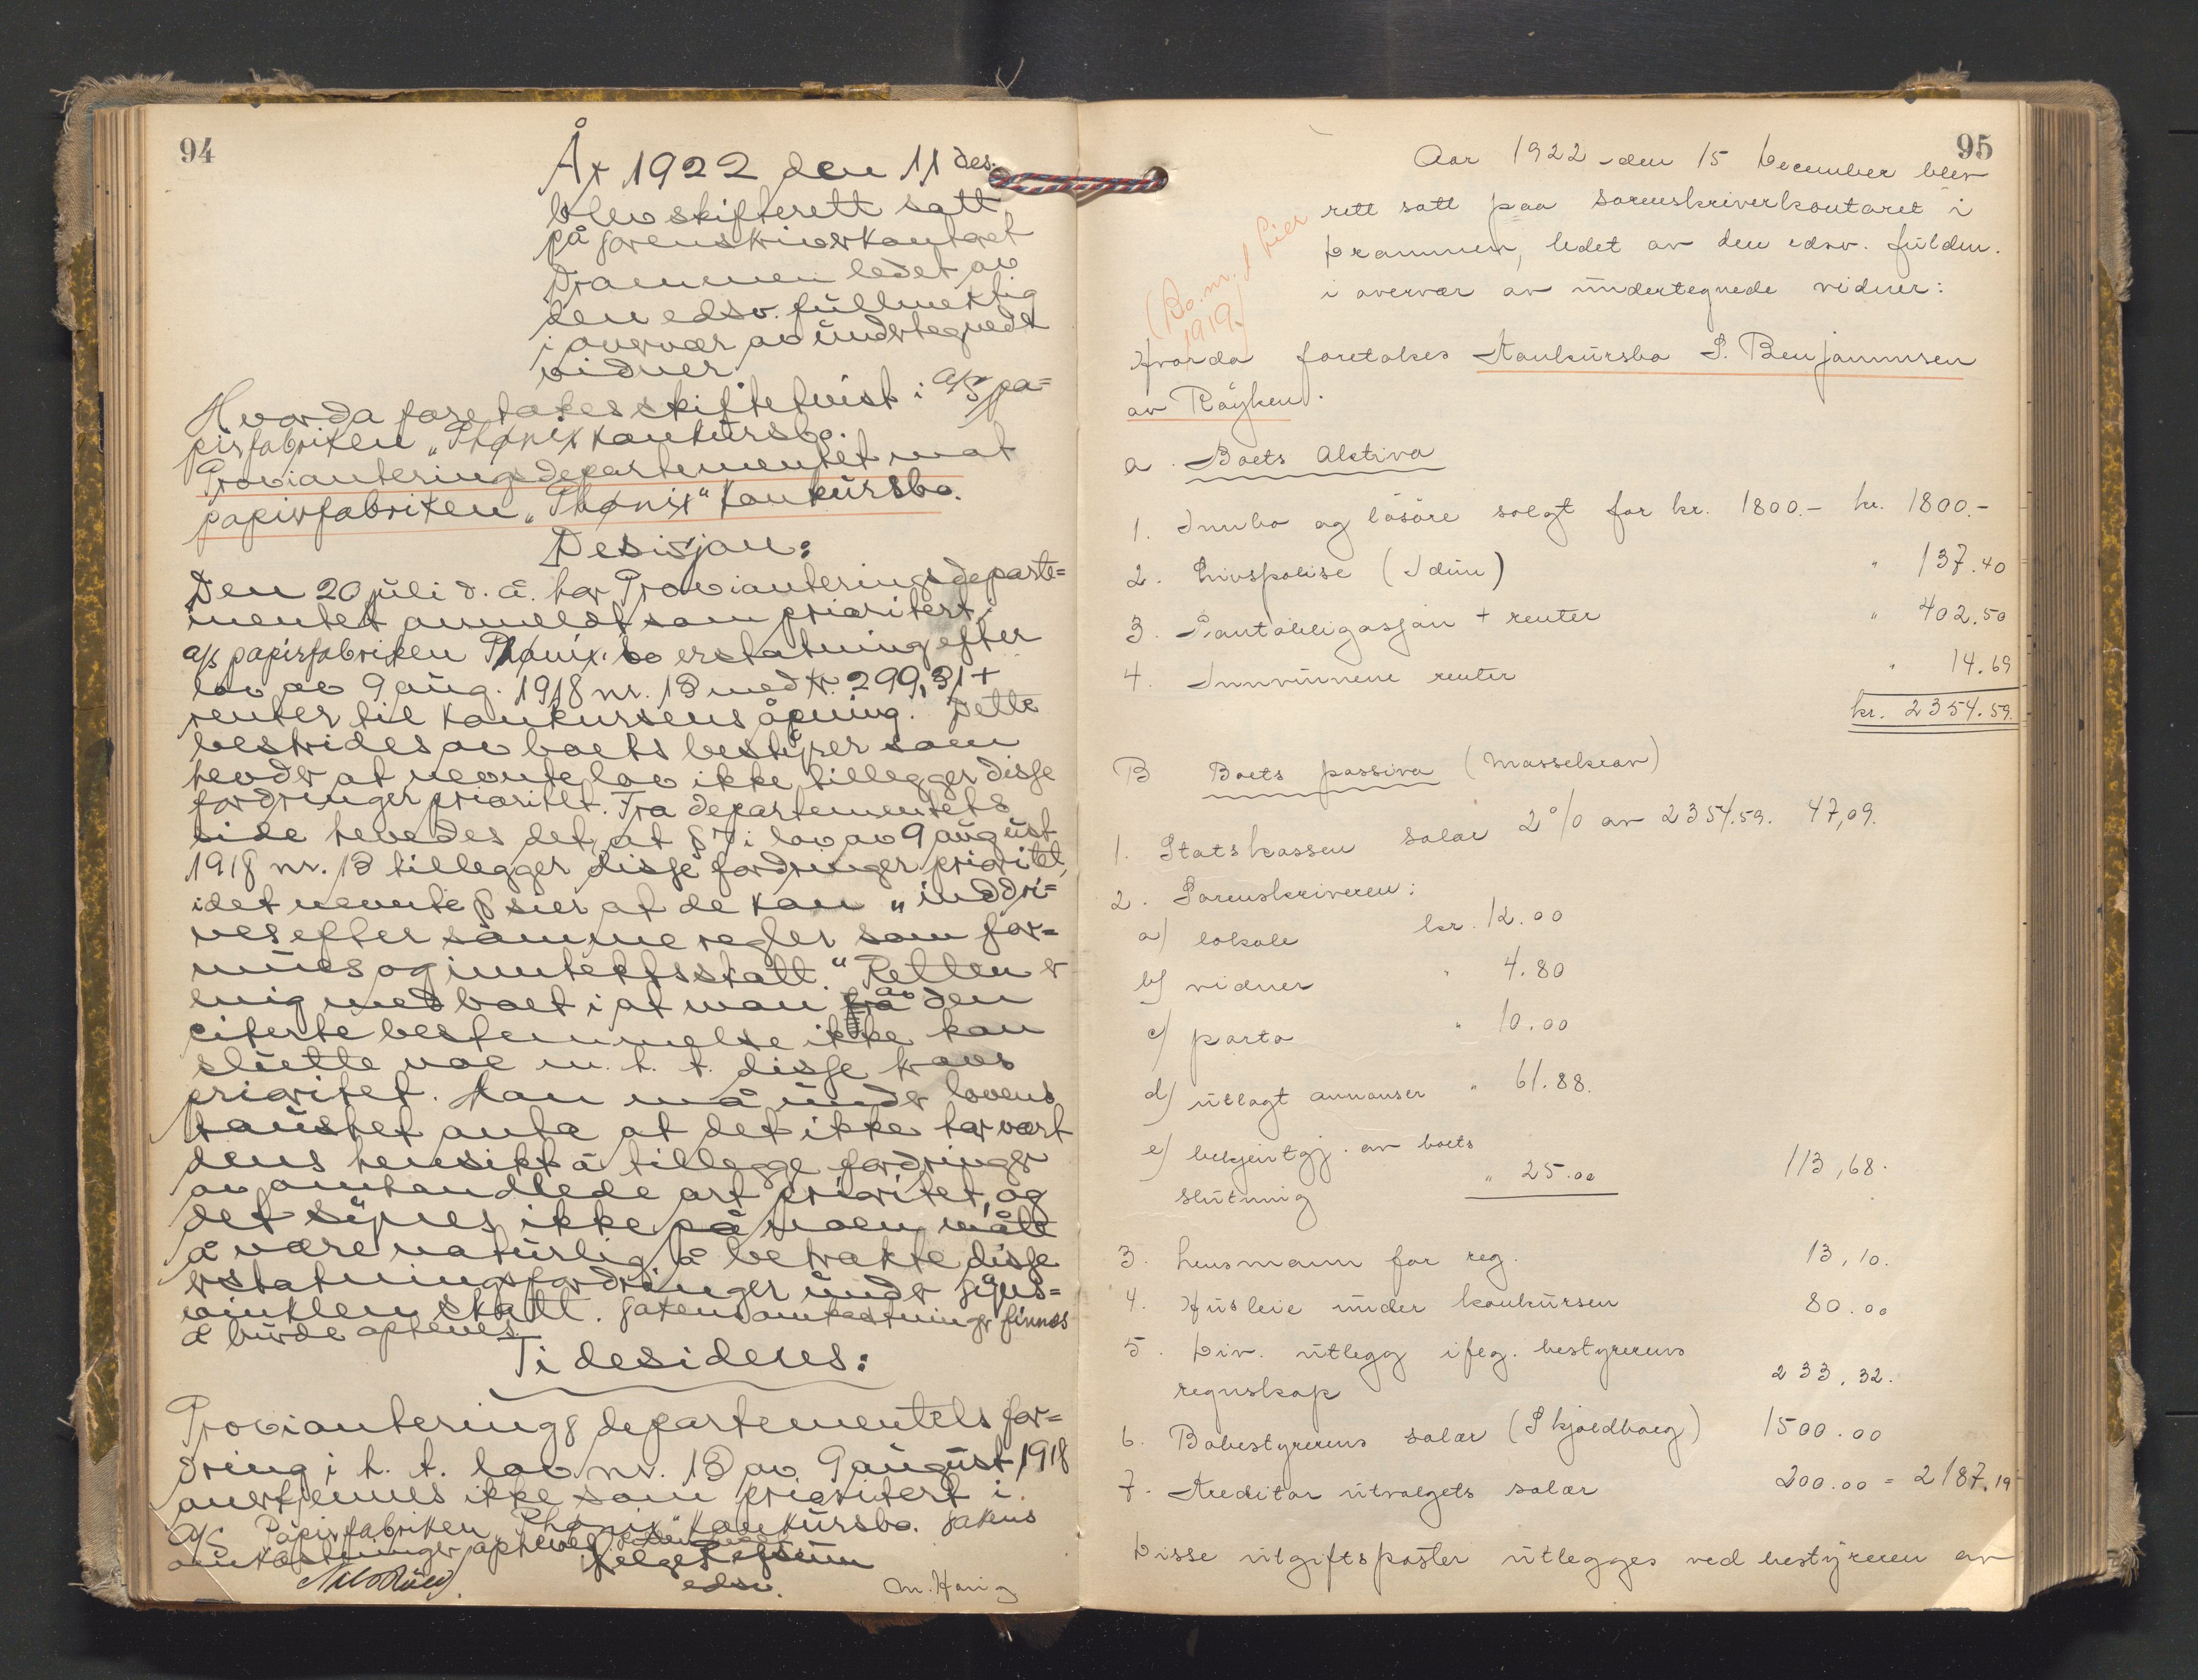 94
År 1922 den 11 des.
blev skifterett satt
på sorenskriverkontoret
Drammen ledet av
den edsv. fullmektig
i overvær av undertegnede
vidner
Hvorda foretokes skiftetvist i A/S pa=
pirfabriken „Phønix konkursbo.
Provianteringsdepartementet mot
papirfabriken „Phønix" konkursbo.
Desisjon:
Den 20 juli d. å. har Provianteringsdeparte=
mentet anmeldt som prioritert i
a/s papirfabriken Phønix' bo erstatning efter
lov av 9 aug. 1918 nr. 13 med kr. 299,31 +
renter til konkursens åpning. Dette
bestrides av boets bestyrer som
hevder at nevnte lov ikke tillegger disse
fordringer prioritet. Fra departementets
side hevdes det, at § 7 i lov av 9 august
1918 nr. 13 tillegger disse fordringer prioritet,
idet nevnte § sier at de kan „inddri=
ves efter samme regler som for=
mues og inntektsskatt." Retten er
enig med boet i at man av den
citerte bestemmelse ikke kan
slutte noe m. h. t. disse kravs
prioritet. Man må under lovens
taushet anta at det ikke har vært
dens hensikt å tillegge fordringer
av omhandlede art prioritet, og
det synes ikke på noen måte
å være naturlig å betrakte disse
erstatningsfordringer under syns=
vinklen skatt. Sakens omkostninger finnes
å burde opheves.
Ti desideres:
Provianteringsdepartementets for=
dring i h. t. lov nr. 13 av 9 august 1918
anerkjennes ikke som prioritert i
A/S Papirfabriken „Phønix" konkursbo. Sakens
omkostninger opheves.
Helge Refsum
edsv.
M. Hovig
95
Aar 1922 den 15 December blev
rett satt paa sorenskriverkontoret i
Drammen, ledet av den edsv. fuldm.
i overvær av undertegnede vidner:
(Bo. nr. 1 Lier
1919.)
Hvorda foretokes Konkursbo S. Benjaminsen
av Røyken.
a. Boets Aktiva
1. Innbo og løsøre solgt for kr. 1800.- kr. 1800.-
2. Livspolise (Idun) " 137.40
3. Pantobligasjon + renter " 402.50
4. Innvunnene renter " 14.69
kr. 2354.59.
B Boets passiva (Massekrav)
1. Statskassen salær 2% av 2354.59. 47,09.
2. Sorenskriveren:
a) lokale kr. 12.00
b) vidner " 4.80
c) porto " 10.00
d) utlagt annonser " 61.88.
e) bekjentgj. av boets
slutning " 25.00 113,68.
3. Lensmann for reg. 13,10.
4. Husleie under konkursen 80.00
5. Div. utlegg ifølg. bestyrerens
regnskap 233,32.
6. Bobestyrerens salær (Skjoldborg) 1500.00
7. Kreditor utvalgets salær 200.00 = 2187.19
Disse utgiftsposter utlegges ved bestyreren av